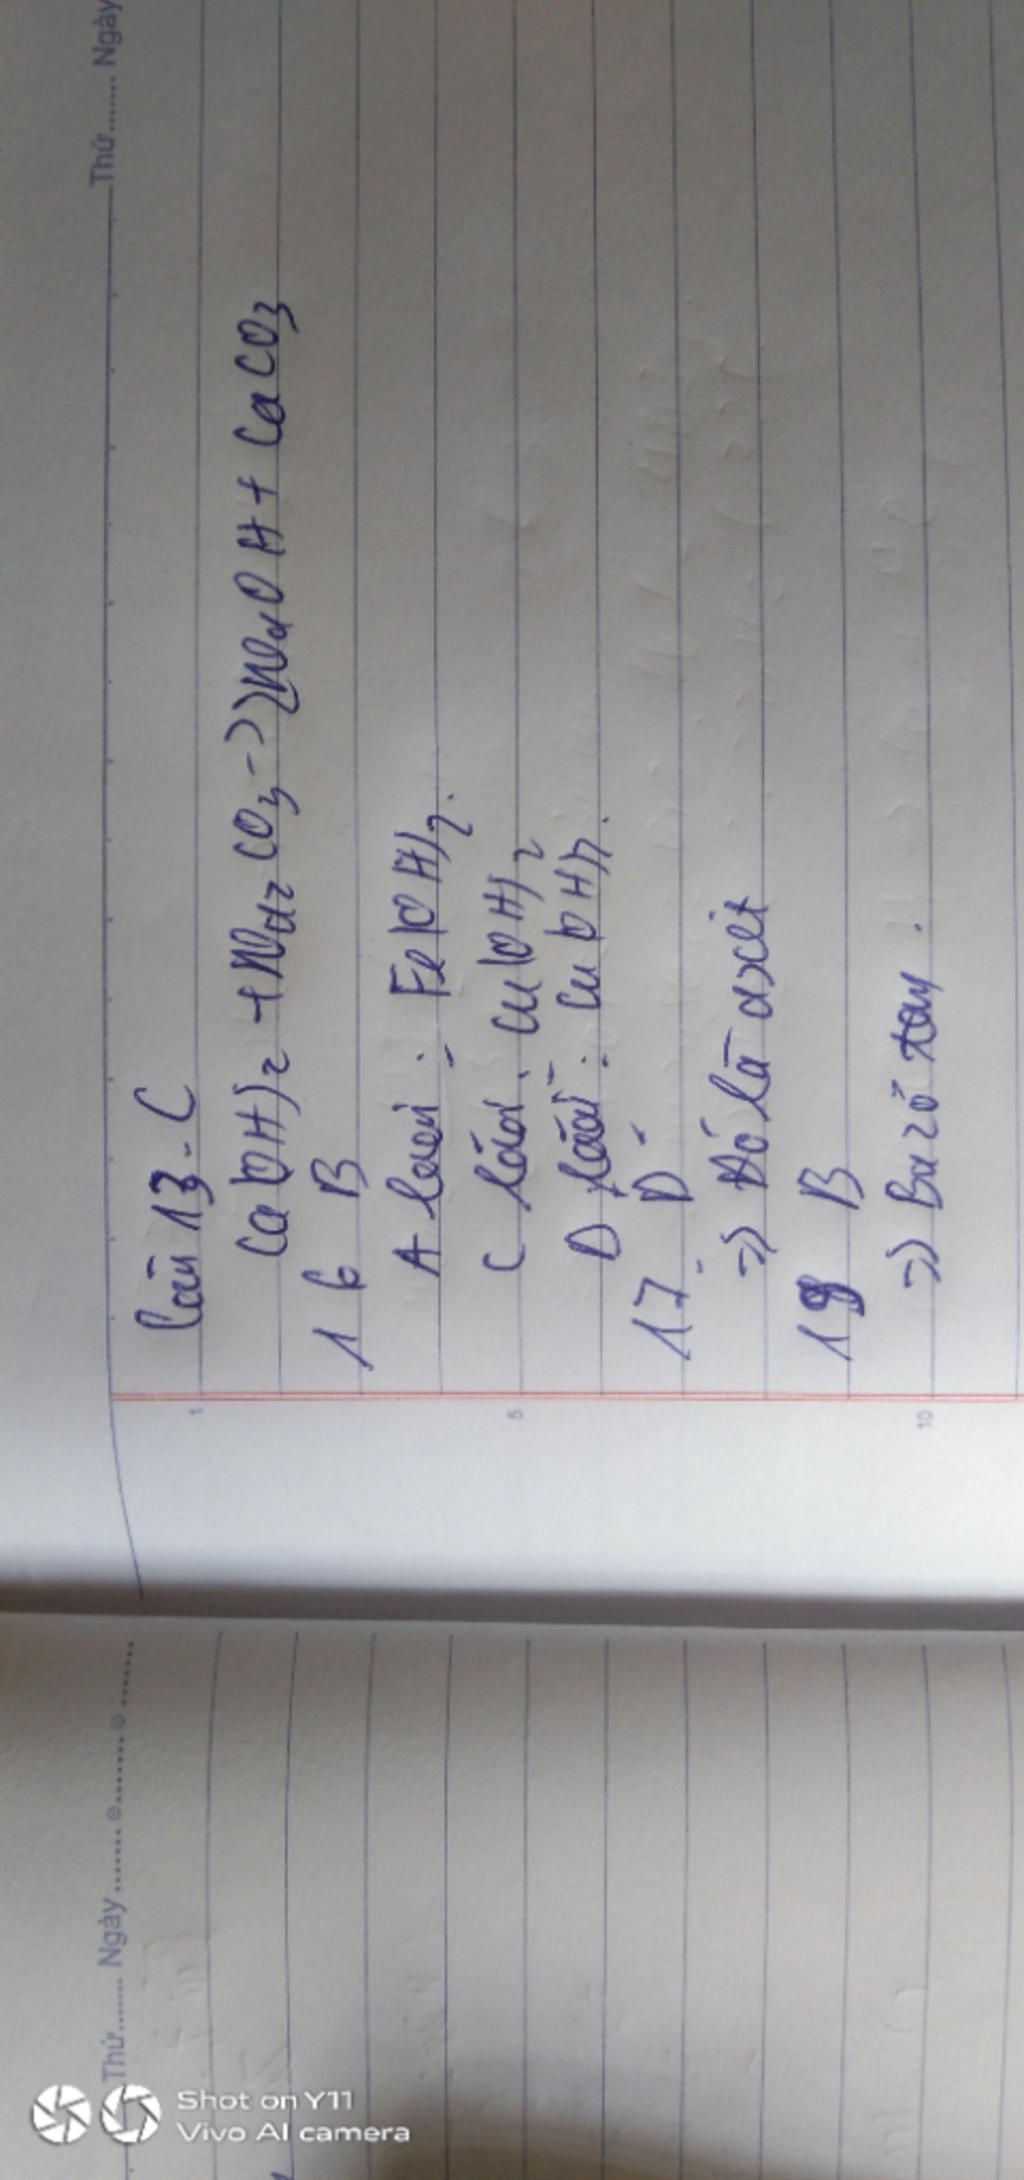 Thứ....... Ngày
Câu 13. C
Ca(OH)2 + Na2CO3 -> 2NaOH + CaCO3
16 B
A loại : Fe(OH)2.
C loại : Cu(OH)2
D loại : Cu(OH)2.
17. D
=> Đó là axit
19 B
=> Bazơ tan.
1
5
10
Thứ....... Ngày
Shot on Y11
Vivo AI camera